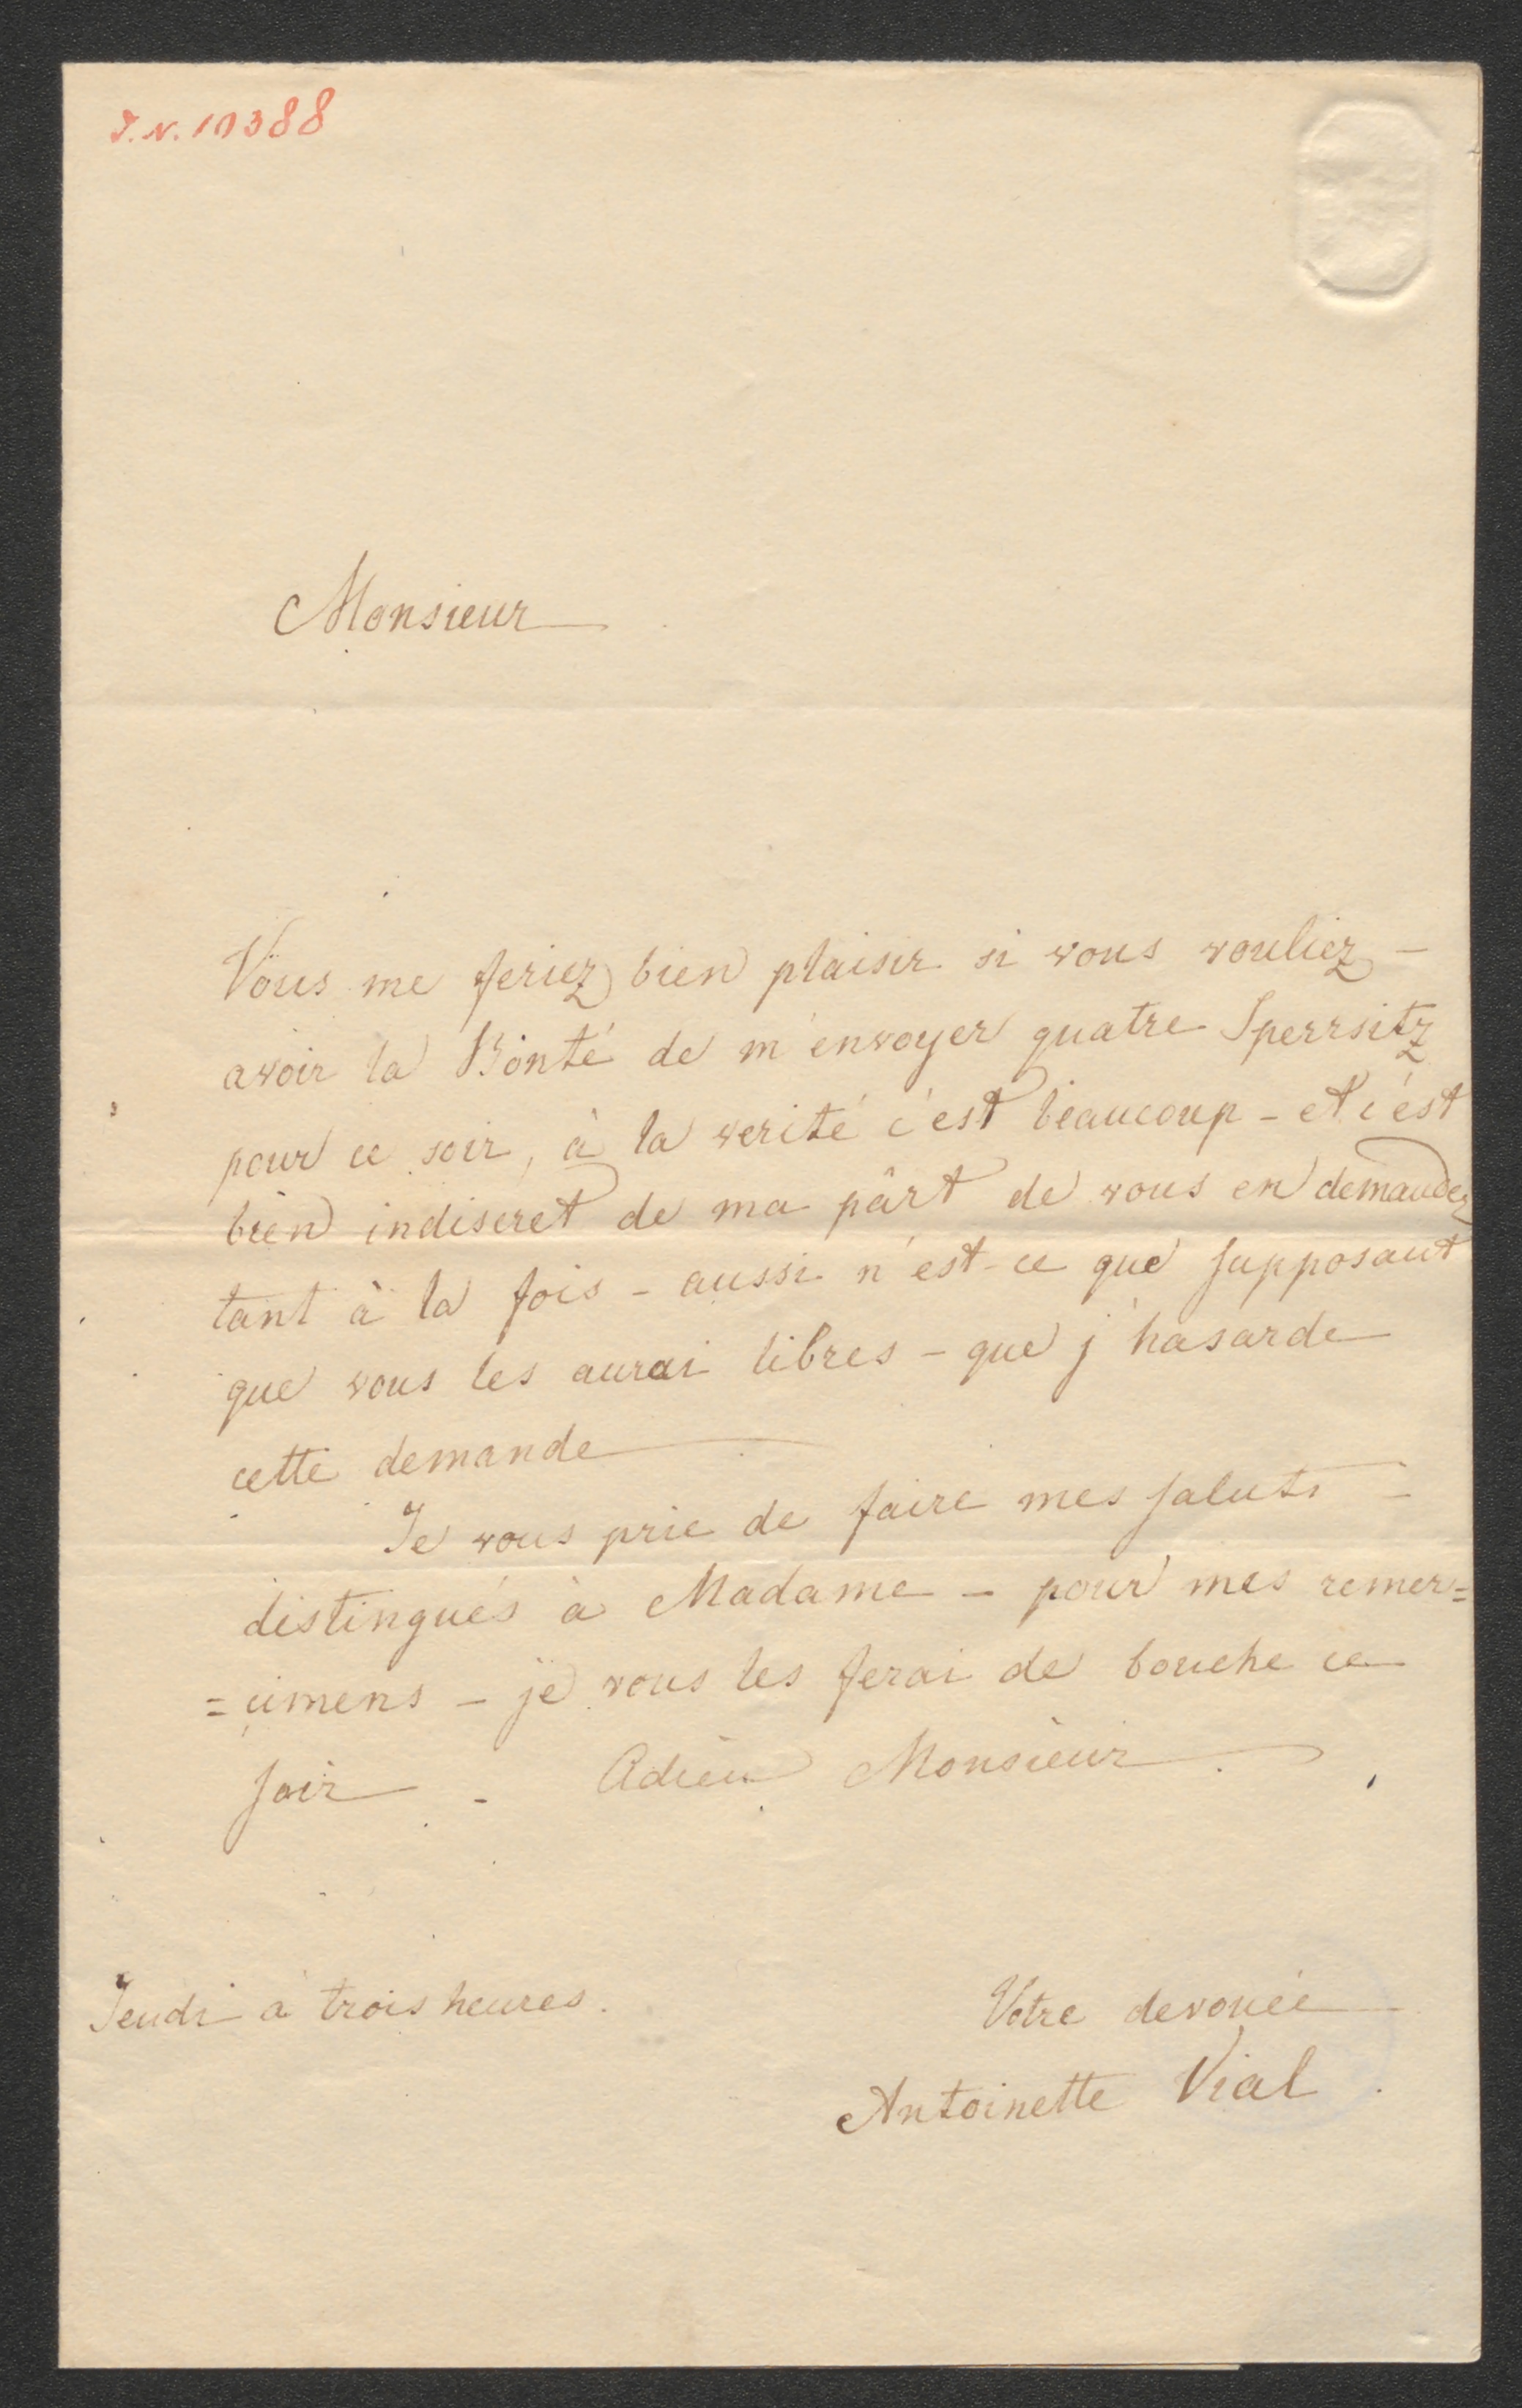 I.N. 10388
Monsieur
Vous me feriez bien plaisir si vous vouliez –
avoir la Bonté de m'envoyer quatre Sperrsitz
pour ce soir, à la verité c'est beaucoup – et c'est
bien indiscret de ma part de vous en demander
tant à la fois – aussi n'est-ce que supposant
que vous les aurai libres – que j'hasarde
cette demande
Je vous prie de faire mes saluts –
distingués à Madame – pour mes remer=
=cimens – je vous les ferai de bouche ce
soir – Adieu Monsieur.
Jeudi à trois heures.
Votre devouée
Antoinette Vial.